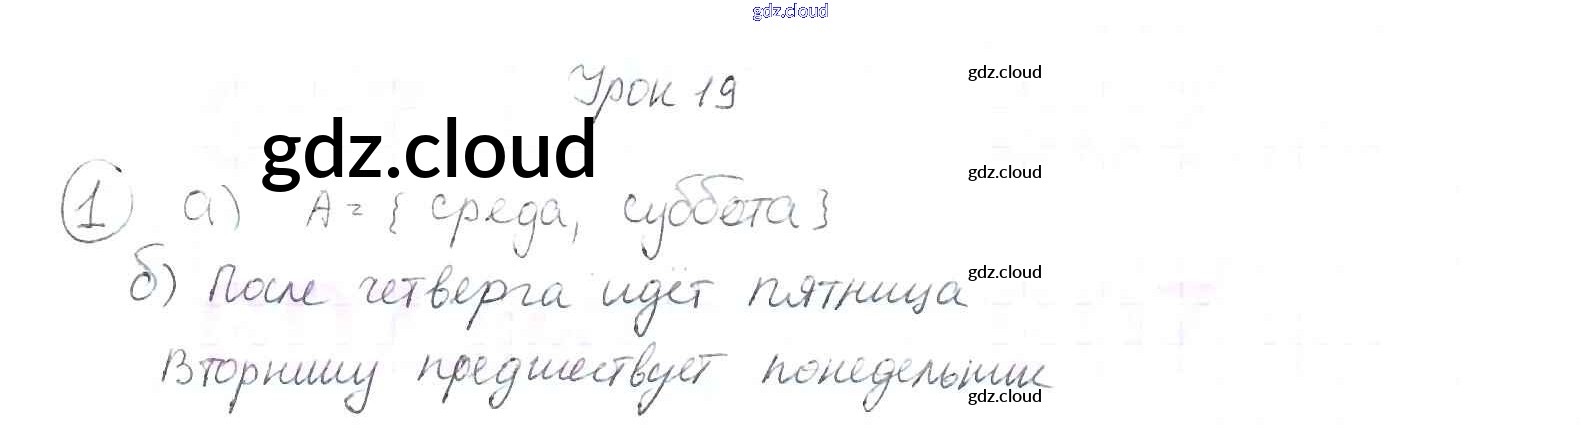 gdz.cloud
Урок 19
gdz.cloud
gdz.cloud
gdz.cloud
1 а) А = { среда, суббота }
б) После четверга идёт пятница
gdz.cloud
Вторнику предшествует понедельник
gdz.cloud